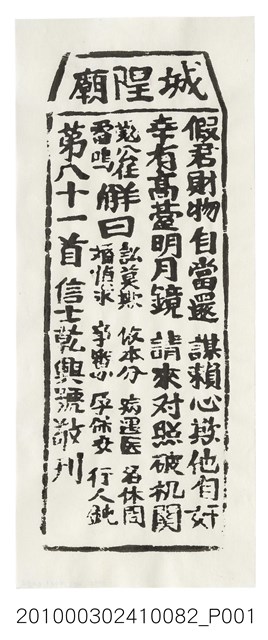 城隍廟
假君財物自當還 謀賴心欺他自奸
幸有高臺明月鏡 請來对照破机関
雷鳴
解曰
訟莫欺 依本分 病遇医 名休問
婚慎求 孕保女 行人鈍
第八十一首 信士乾興號敬刊
201000302410082_P001